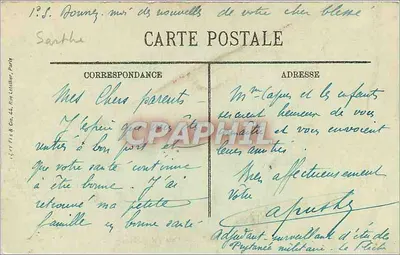 P.S. Donnez-moi des nouvelles de votre cher blessé
Sarthe
CARTE POSTALE
CORRESPONDANCE
ADRESSE
Mes Chers parents -
J'espère que êtes
rentrés à bon port et
que votre santé continue
à être bonne. J'ai
retrouvé ma petite
famille en bonne santé
Mme et les enfants
seront heureux de vous
et vous envoient
leurs amitiés.
Bien affectueusement
Vôtre
Adjudant surveillant d'études
Prytanée militaire - La Flèche
CPAPHIL